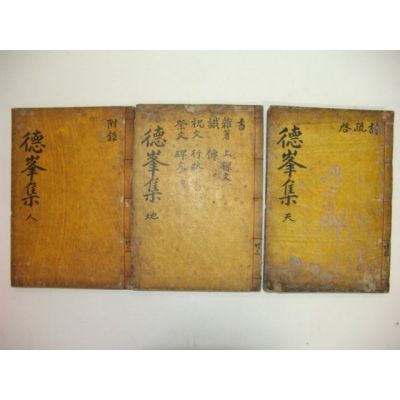 詩疏啓
德峯集 天
書
雜著 上樑文
識 傳
祝文 行狀
祭文 碑文
德峯集 地
附錄
德峯集 人